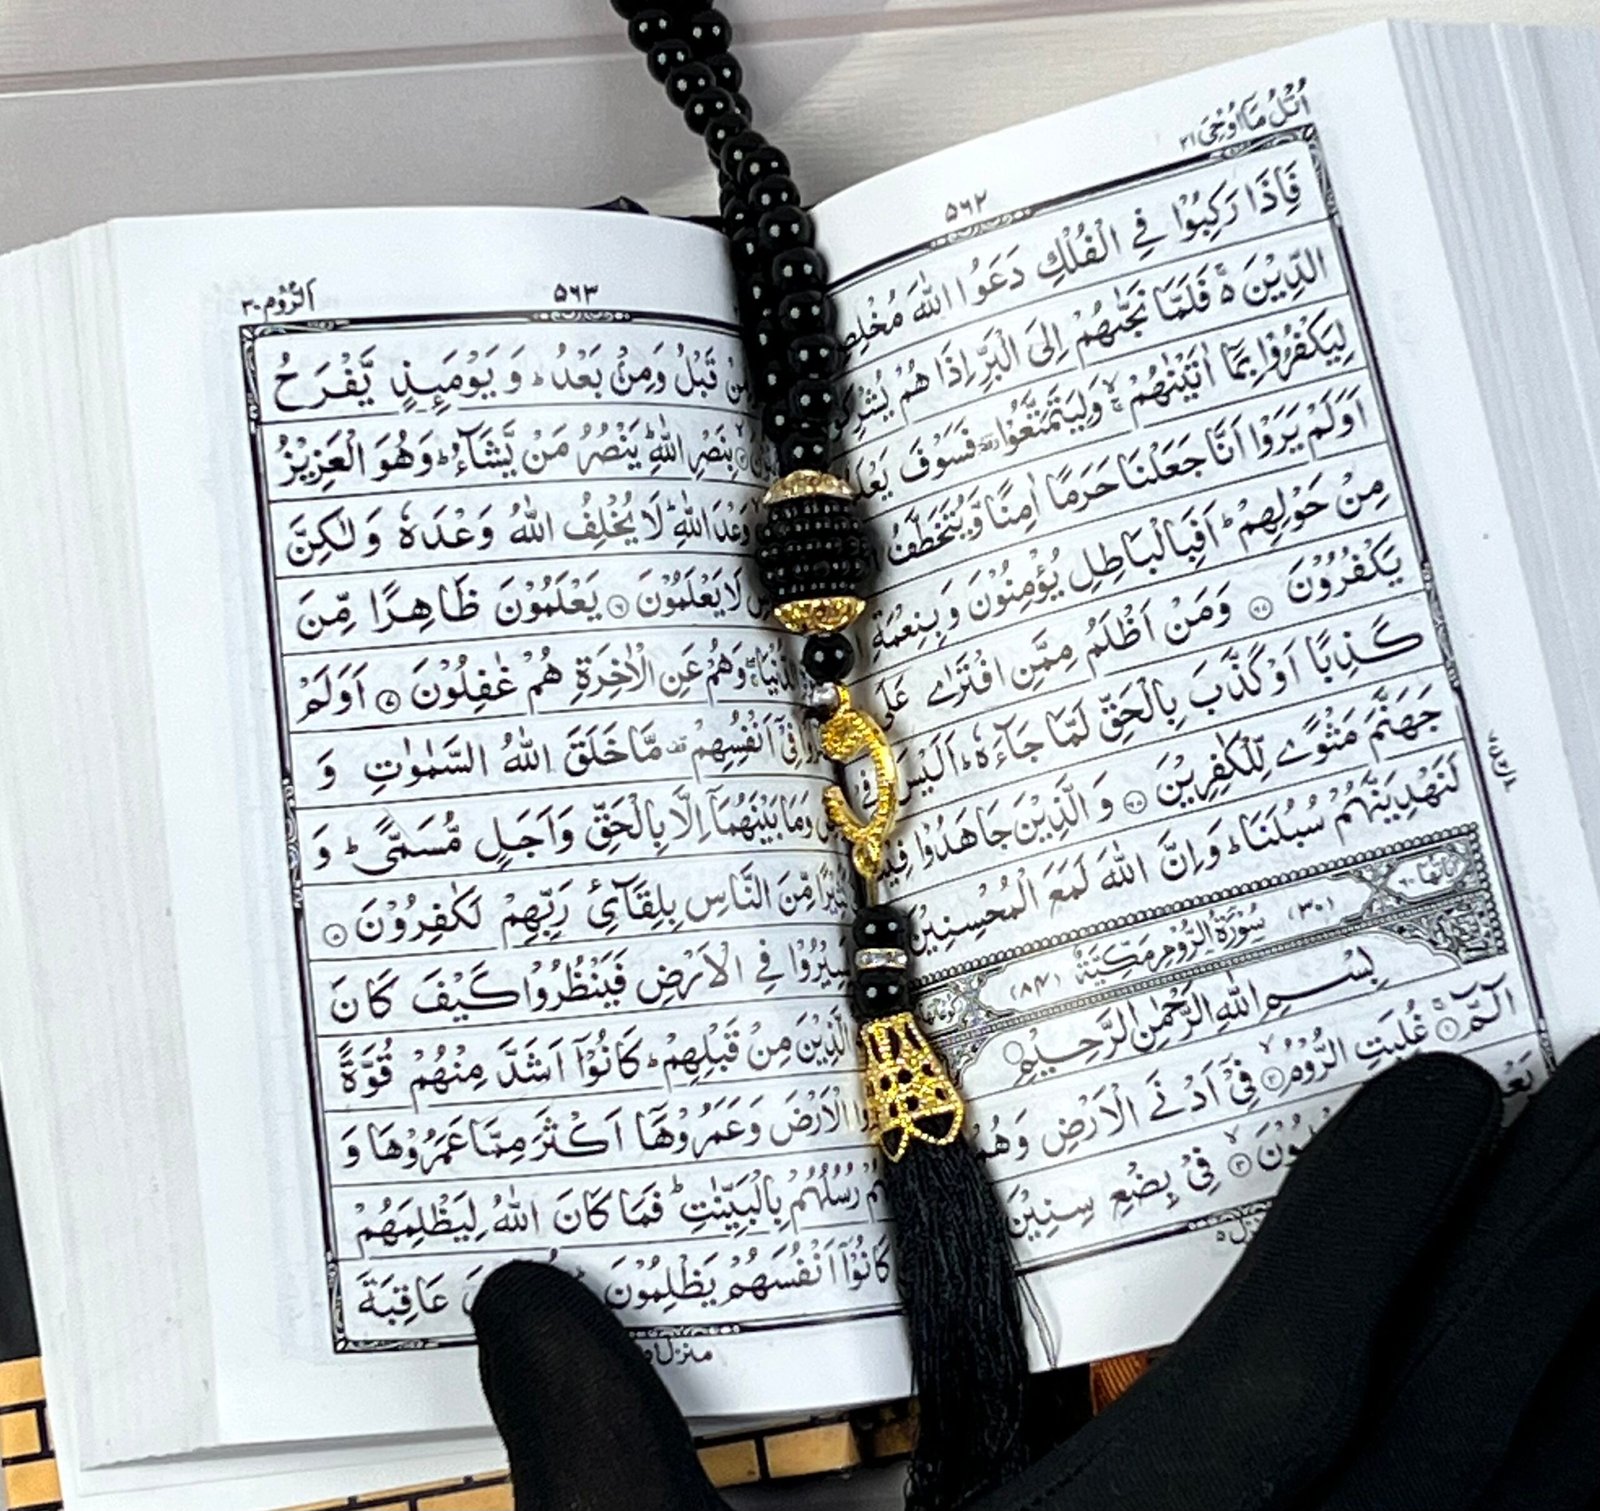 اُتْلُ مَآ اُوْحِیَ ٢١
۵۶۲
فَاِذَا رَكِبُوْا فِی الْفُلْكِ دَعَوُا اللّٰهَ
الدِّيْنَ ۵ۚ فَلَمَّا نَجّٰىهُمْ اِلَی الْبَرِّ اِذَا هُمْ
لِيَكْفُرُوْا بِمَآ اٰتَيْنٰهُمْ ۙۚ وَلِيَتَمَتَّعُوْا ۥ فَسَوْفَ
اَوَلَمْ يَرَوْا اَنَّا جَعَلْنَا حَرَمًا اٰمِنًا وَّيُتَخَطَّفُ
مِنْ حَوْلِهِمْ ؕ اَفَبِالْبَاطِلِ يُؤْمِنُوْنَ وَبِنِعْمَةِ
يَكْفُرُوْنَ ۝ وَمَنْ اَظْلَمُ مِمَّنِ افْتَرٰی
كَذِبًا اَوْ كَذَّبَ بِالْحَقِّ لَمَّا جَآءَهٗ ؕ اَلَيْسَ
جَهَنَّمَ مَثْوًی لِّلْكٰفِرِيْنَ ۝ وَالَّذِيْنَ جَاهَدُوْا
لَنَهْدِيَنَّهُمْ سُبُلَنَا ؕ وَاِنَّ اللّٰهَ لَمَعَ الْمُحْسِنِيْنَ
(٣٠) سُوْرَةُ الرُّوْمِ مَكِّيَّةٌ (٨۴)
بِسْمِ اللّٰهِ الرَّحْمٰنِ الرَّحِيْمِ
الٓمّٓ ۝ غُلِبَتِ الرُّوْمُ ۝ فِیْٓ اَدْنَی الْاَرْضِ وَهُمْ
فِیْ بِضْعِ سِنِيْنَ
اَلرُّوْم ٣٠
۵۶٣
مِنْ قَبْلُ وَمِنْۢ بَعْدُ ؕ وَيَوْمَئِذٍ يَّفْرَحُ
بِنَصْرِ اللّٰهِ ؕ يَنْصُرُ مَنْ يَّشَآءُ ؕ وَهُوَ الْعَزِيْزُ
وَعْدَ اللّٰهِ ؕ لَا يُخْلِفُ اللّٰهُ وَعْدَهٗ وَلٰكِنَّ
لَا يَعْلَمُوْنَ ۝ يَعْلَمُوْنَ ظَاهِرًا مِّنَ
الدُّنْيَا ۖۚ وَهُمْ عَنِ الْاٰخِرَةِ هُمْ غٰفِلُوْنَ ۝ اَوَلَمْ
فِیْٓ اَنْفُسِهِمْ ۥ مَا خَلَقَ اللّٰهُ السَّمٰوٰتِ وَ
وَمَا بَيْنَهُمَآ اِلَّا بِالْحَقِّ وَاَجَلٍ مُّسَمًّی ؕ وَ
مِّنَ النَّاسِ بِلِقَآئِ رَبِّهِمْ لَكٰفِرُوْنَ ۝
يَسِيْرُوْا فِی الْاَرْضِ فَيَنْظُرُوْا كَيْفَ كَانَ
الَّذِيْنَ مِنْ قَبْلِهِمْ ؕ كَانُوْٓا اَشَدَّ مِنْهُمْ قُوَّةً
الْاَرْضَ وَعَمَرُوْهَآ اَكْثَرَ مِمَّا عَمَرُوْهَا وَ
رُسُلُهُمْ بِالْبَيِّنٰتِ ؕ فَمَا كَانَ اللّٰهُ لِيَظْلِمَهُمْ
كَانُوْٓا اَنْفُسَهُمْ يَظْلِمُوْنَ عَاقِبَةَ